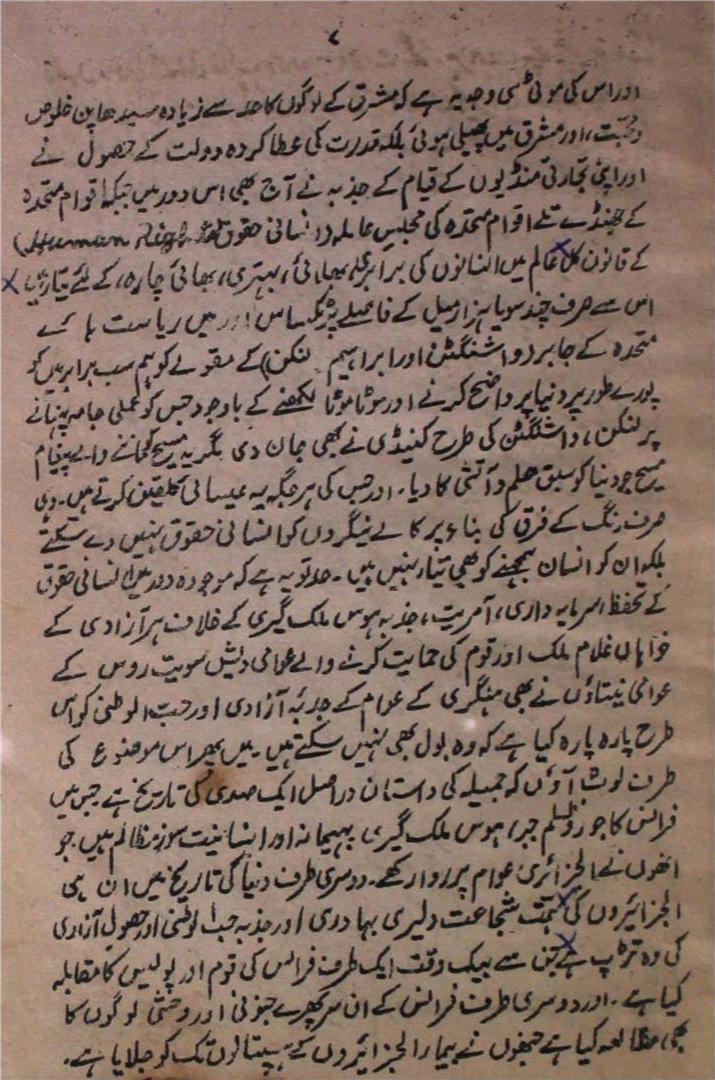 اور اس کی موٹی سی وجہ یہ ہے کہ مشرق کے لوگوں کا حد سے زیادہ سیدھا پن خلوص
و محبت، اور مشرق میں پھیلی ہوئی بلکہ قدرت کی عطا کردہ دولت کے حصول نے
اور اپنی تجارتی منڈیوں کے قیام کے جذبہ نے آج بھی اس دور میں جبکہ اقوام متحدہ
کے جھنڈے تلے اقوام متحدہ کی مجلس عاملہ (انسانی حقوق Human Right)
کے قانون کل عالم میں انسانوں کی برابری، بھلائی، بہتری، بھائی چارہ، کے لئے تیار ہیں
اس سے صرف چند سو یا ہزار میل کے فاصلے پر ٹکساس اور میں ریاست ہائے
متحدہ کے جابر (واشنگٹن اور ابراہیم لنکن) کے مقولے کو ہم سب برابر ہیں کو
پورے طور پر دنیا پر واضح کرنے اور موٹا موٹا لکھنے کے باوجود جس کو عملی جامہ پہنانے
پر لنکن، واشنگٹن کی طرح کنیڈی نے بھی جان دی مگر یہ مسیح کہانے والے پیغام
مسیح جو دنیا کو سبق حلم و آتشی کا دیا۔ اور جس کی ہر جگہ یہ عیسائی تلقین کرتے ہیں۔ وہی
صرف رنگ کے فرق کی بناء پر کالے نیگروں کو انسانی حقوق نہیں دے سکتے
بلکہ ان کو انسان سمجھنے کو بھی تیار نہیں ہیں۔ حد تو یہ ہے کہ موجودہ دور میں انسانی حقوق
کے تحفظ سرمایہ داری، آمریت، جذبہ ہوس ملک گیری کے خلاف ہر آزادی کے
خواہاں غلام ملک اور قوم کی حمایت کرنے والے عوامی دیش سویت روس کے
عوامی نیتاؤں نے بھی ہنگری کے عوام کے جذبۂ آزادی اور حب الوطنی کو اس
طرح پارہ پارہ کیا ہے کہ وہ بول بھی نہیں سکتے ہیں۔ میں پھر اس موضوع کی
طرف لوٹ آؤں کہ جمیلہ کی داستان دراصل ایک صدی کی تاریخ ہے جس میں
فرانس کا جور و ظلم جبر، ہوس ملک گیری بہیمانہ اور انسانیت سوز مظالم ہیں جو
انھوں نے الجزائری عوام پر روا رکھے۔ دوسری طرف دنیا کی تاریخ میں ان ہی
الجزائروں کی ہمت شجاعت دلیری بہادری اور جذبہ حب الوطنی اور حصول آزادی
کی وہ تڑپ ہے جن سے بیک وقت ایک طرف فرانس کی قوم اور پولیس کا مقابلہ
کیا ہے۔ اور دوسری طرف فرانس کے ان سر پھرے جنونی اور وحشی لوگوں کا
بھی مطالعہ کیا ہے جنھوں نے بیمار الجزائروں کے ہسپتالوں تک کو جلایا ہے۔